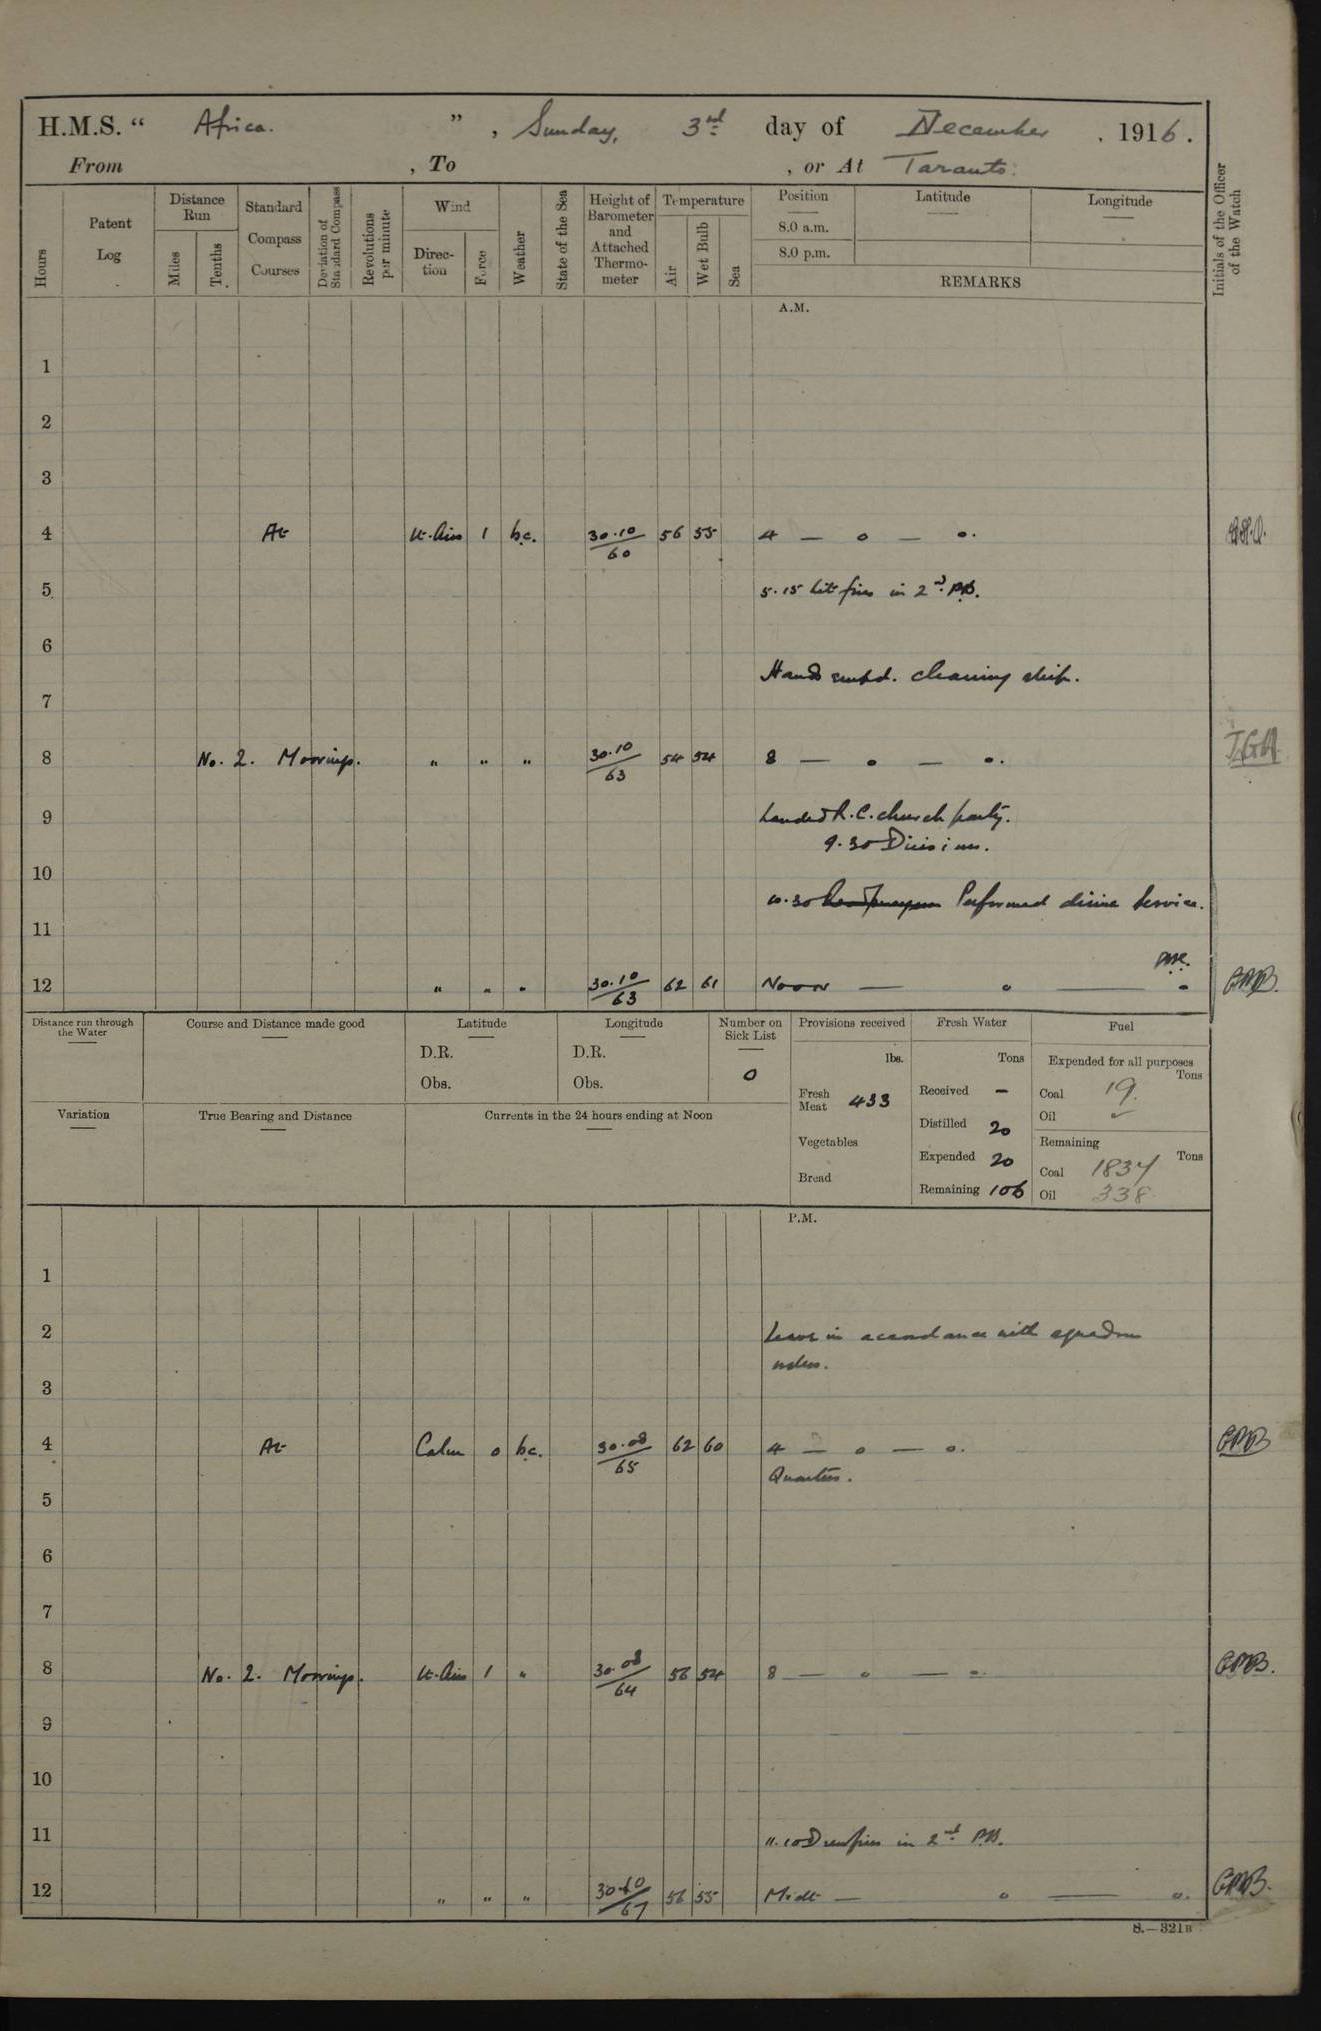 H.M.S. " Africa. " , Sunday, 3rd day of December , 1916.
From , To , or At Taranto.
Hours
Patent Log
Distance Run
Miles
Tenths
Standard Compass Courses
Deviation of Standard Compass
Revolutions per minute
Wind
Direction
Force
Weather
State of the Sea
Height of Barometer and Attached Thermometer
Temperature
Air
Wet Bulb
Sea
Position
8.0 a.m.
8.0 p.m.
Latitude
Longitude
REMARKS
Initials of the Officer of the Watch
A.M.
1
2
3
4 At Lt. Airs 1 b.c. 30.10/60 56 55 4 — o — o.
5 5.15 Lit fires in 2nd P.B.
6
Hands empd. cleaning ship.
7
8 No. 2. Moorings. " " " 30.10/63 54 54 8 — o — o. J.G.A.
9 Landed R.C. church party.
9.30 Divisions.
10
10.30 Performed divine Service.
11
12 " " " 30.10/63 62 61 Noon — o — o
Distance run through the Water
Course and Distance made good
Latitude
D.R.
Obs.
Longitude
D.R.
Obs.
Number on Sick List
0
Variation
True Bearing and Distance
Currents in the 24 hours ending at Noon
Provisions received
lbs.
Fresh Meat 433
Vegetables
Bread
Fresh Water
Tons
Received –
Distilled 20
Expended 20
Remaining 106
Fuel
Expended for all purposes
Tons
Coal 19.
Oil
Remaining
Tons
Coal 1837
Oil 338
P.M.
1
2 Leave in accordance with squadron
orders.
3
4 At Calm 0 b.c. 30.08/65 62 60 4 — o — o.
Quarters.
5
6
7
8 No. 2. Moorings. Lt. Airs 1 " 30.08/64 56 54 8 — o — o.
9
10
11 11.10 Drew fires in 2nd P.B.
12 " " " 30.10/67 56 55 Midt — o — o.
S.—321B